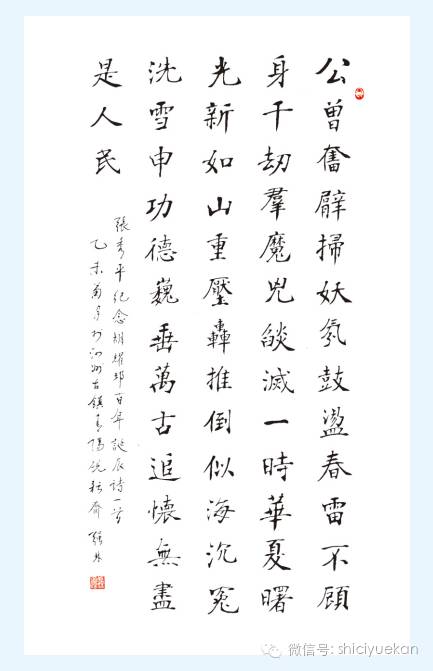 公曾奮臂掃妖氛鼓盪春雷不顧
身千劫羣魔兇燄滅一時華夏曙
光新如山重壓轟推倒似海沉冤
洗雪申功德巍垂萬古追懷無盡
是人民
張秀平紀念胡耀邦百年誕辰詩一首
乙未菊月於古鎮青陽耘齋
微信号: shiciyuekan